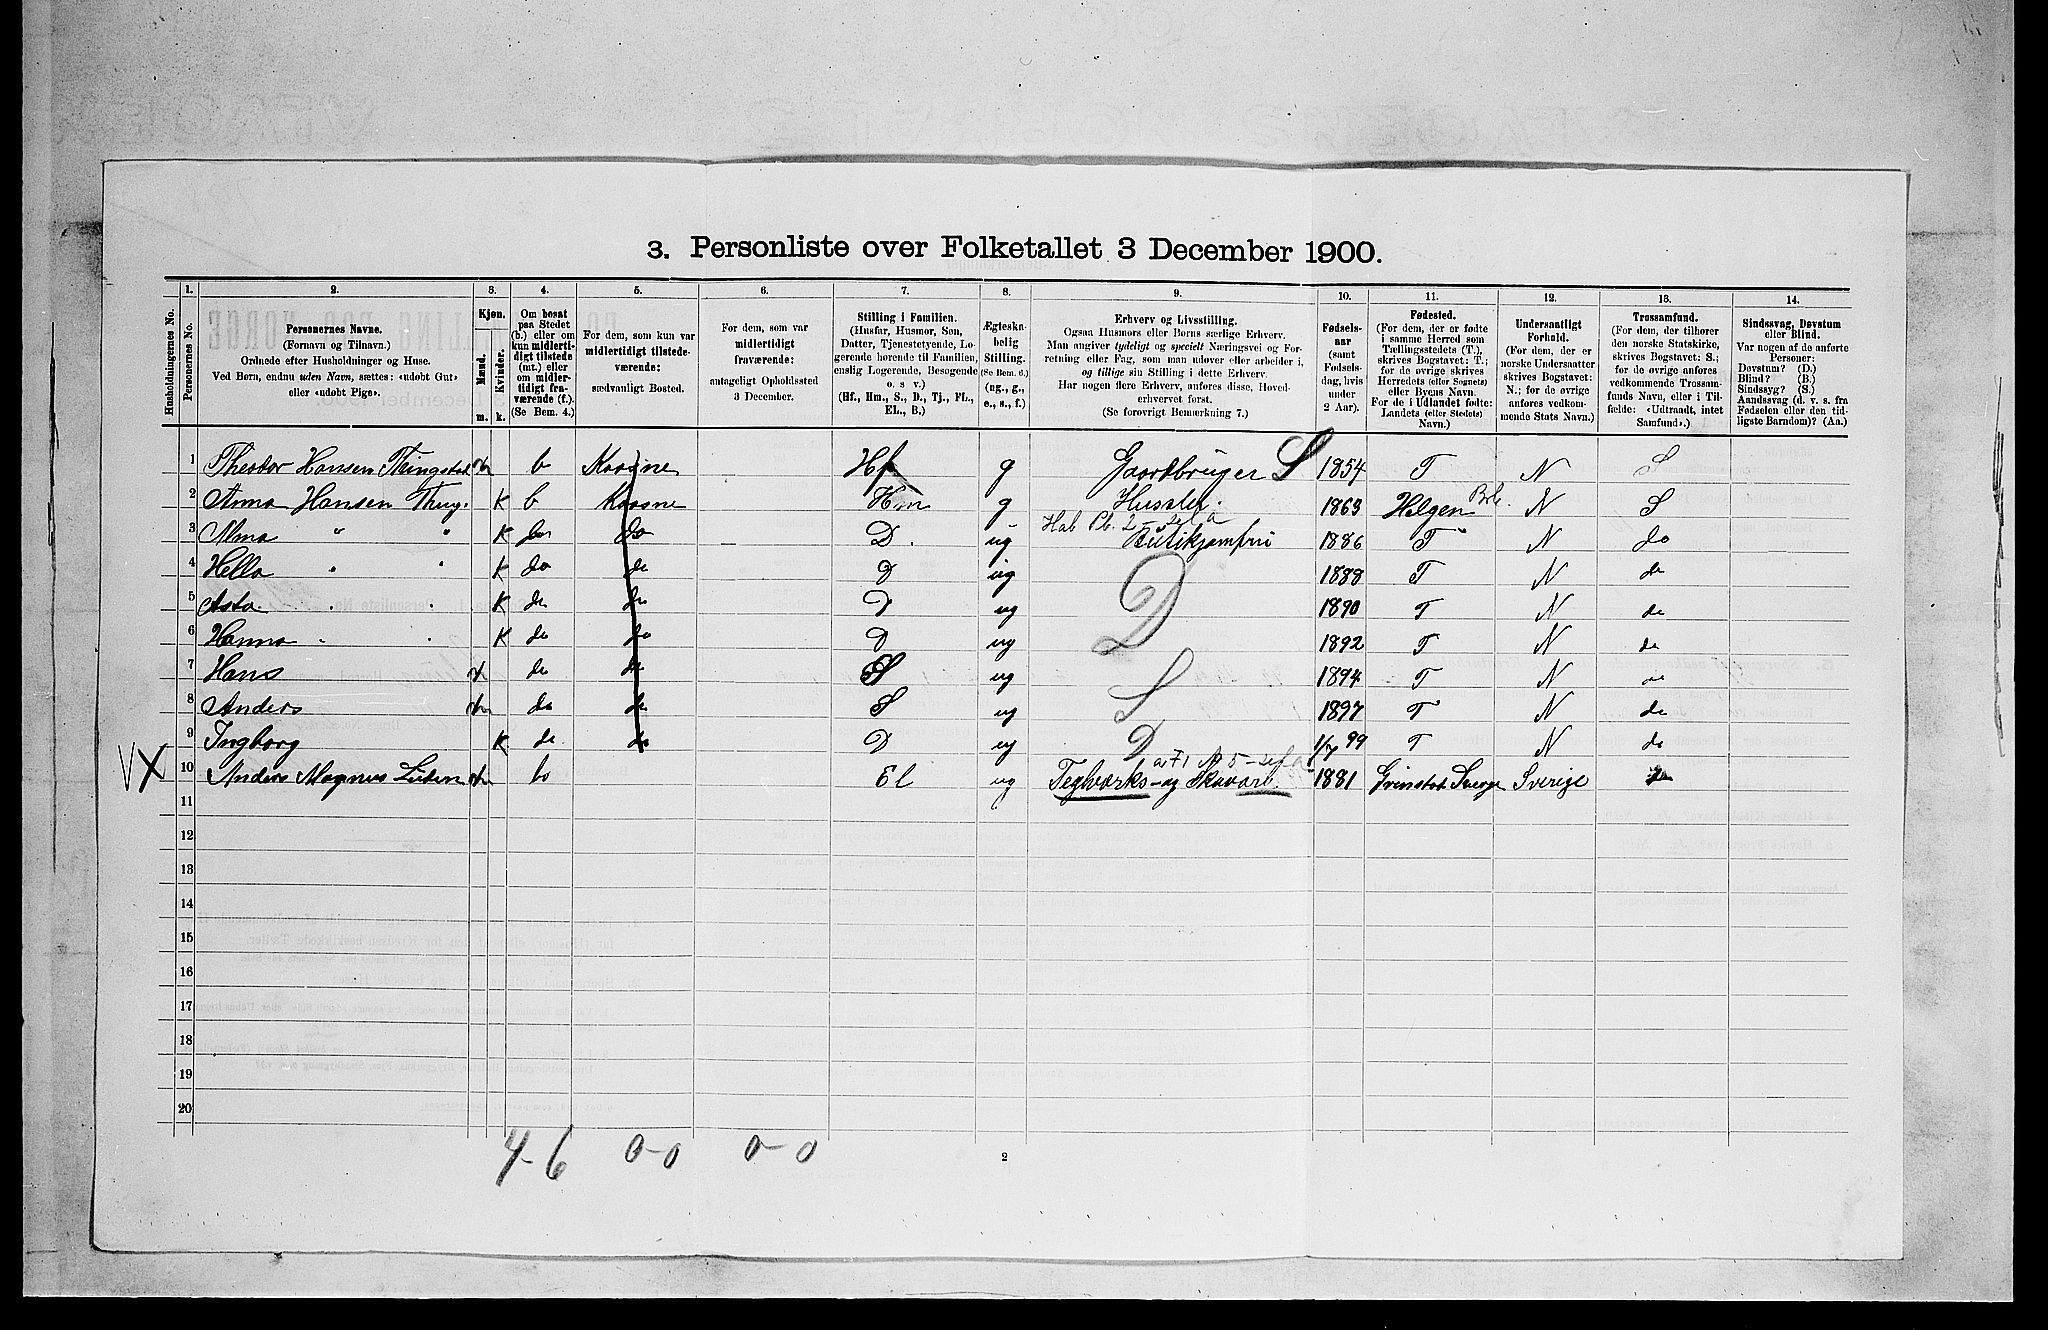 3. Personliste over Folketallet 3 December 1900.
1. 2. 3. 4. 5. 6. 7. 8. 9. 10. 11. 12. 13. 14.
Husholdningernes No.
Personernes No.
Personernes Navne.
(Fornavn og Tilnavn.)
Ordnede efter Husholdninger og Huse.
Ved Børn, endnu uden Navn, sættes: «udøbt Gut»
eller «udøbt Pige».
Kjøn.
Mænd.
Kvinder.
m. k.
Om bosat
paa Stedet
(b.) eller om
kun midlerti-
digt tilstede
(mt.) eller
om midler-
tidigt fra-
værende (f.).
(Se Bem. 4.)
For dem, som kun var
midlertidigt tilstede-
værende:
sædvanligt Bosted.
For dem, som var
midlertidigt
fraværende:
antageligt Opholdssted
3 December.
Stilling i Familien.
(Husfar, Husmor, Søn,
Datter, Tjenestetyende, Lo-
gerende hørende til Familien,
enslig Logerende, Besøgende
o. s v.)
(Hf., Hm., S., D., Tj., FL.,
EL., B.)
Ægteska-
belig
Stilling.
(Se Bem. 6.)
(ug., g.,
e., s., f.)
Erhverv og Livsstilling.
Ogsaa Husmors eller Børns særlige Erhverv.
Man angiver tydeligt og specielt Næringsvei og For-
retning eller Fag, som man udøver eller arbeider i,
og tillige sin Stilling i dette Erhverv.
Har nogen flere Erhverv, anføres disse, Hoved-
erhvervet først.
(Se forøvrigt Bemerkning 7.)
Fødsels-
aar
(samt
Fødsels-
dag, hvis
under
2 Aar).
Fødested.
(For dem, der er fødte
i samme Herred som
Tællingsstedets (T.),
skrives Bogstavet: T.;
for de øvrige skrives
Herredets (eller Sognets)
eller Byens Navn.
For de i Udlandet fødte:
Landets (eller Stedets)
Navn.)
Undersaatligt
Forhold.
(For dem, der er
norske Undersaatter
skrives Bogstavet:
N.; for de øvrige
anføres vedkom-
mende Stats Navn.)
Trossamfund.
(For dem, der tilhører
den norske Statskirke,
skrives Bogstavet: S.;
for de øvrige anføres
vedkommende Trossam-
funds Navn, eller i Til-
fælde: «Udtraadt, intet
Samfund».)
Sindssvag, Døvstum
eller Blind.
Var nogen af de anførte
Personer:
Døvstum? (D.)
Blind? (B.)
Sindssyg? (S.)
Aandssvag (d. v. s. fra
Fødselen eller den tid-
ligste Barndom)? (Aa.)
1 Theodor Hansen Thingstad m b Kaasne Hf g Gaardbruger S 1854 T N S
2 Anna Hansen Thing. K b Kaasne Hm g Husstel. 1863 Helgen N S
3 Alma " " K do do D. ug Butikjomfru 1886 T N do
4 Hella " " K do do D ug 1888 T N do
5 Asta " " K do do D ug D 1890 T N do
6 Hanna " " K do do D ug 1892 T N do
7 Hans m do do S ug 1894 T N do
8 Anders m do do S ug S 1897 T N do
9 Ingborg K do do D ug D 1/7 99 T N do
VX 10 Anders Magnus m bo El ug Teglværks- og 1881 Grinstad Sverge Sverige do
11
12
13
14
15
16
17
18
19
20
4-6 0-0 0-0
2